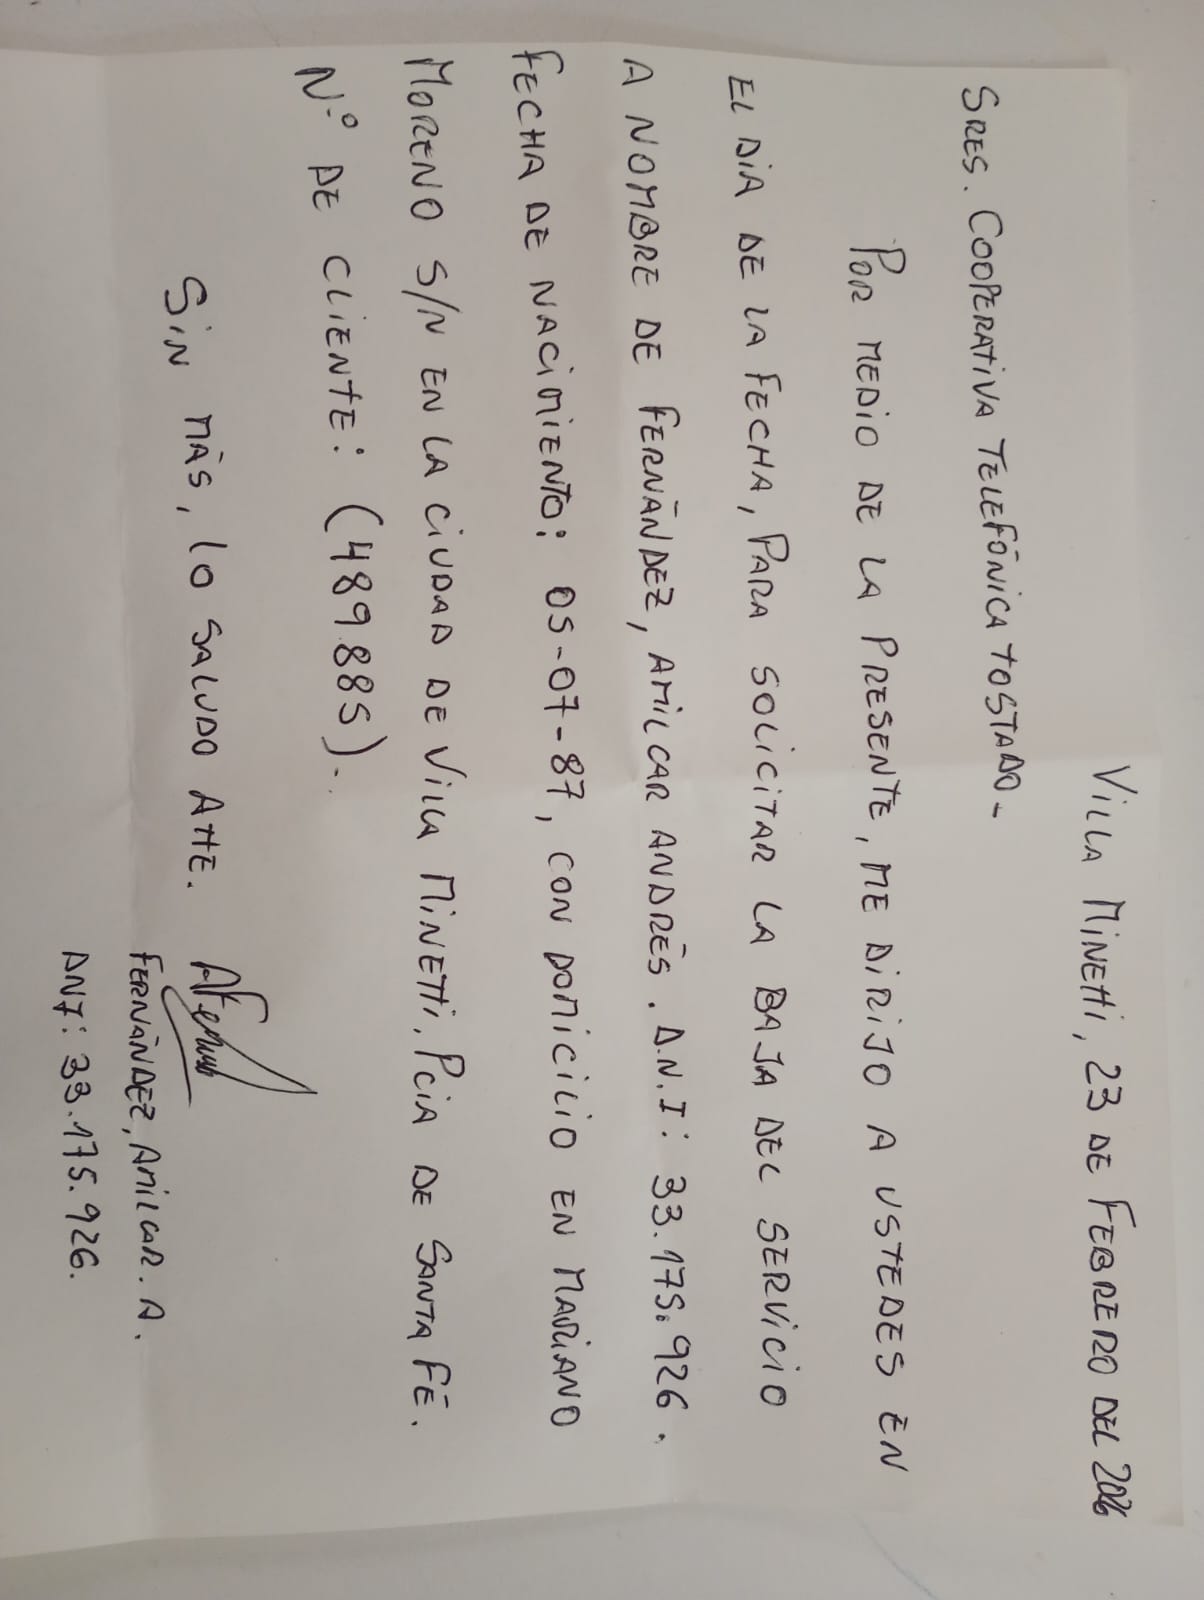 Villa Minetti, 23 de Febrero del 2026
Sres. Cooperativa Telefónica Tostado-
Por medio de la presente, me dirijo a ustedes en
el dia de la fecha, para solicitar la baja del servicio
a nombre de Fernández, Amilcar Andrés. D.N.I: 33.175.926.
Fecha de nacimiento: 05-07-87, con domicilio en Mariano
Moreno S/N en la ciudad de Villa Minetti, Pcia de Santa Fé.
N.º de cliente: (489885).
Sin más, lo saludo Atte.
Fernández, Amilcar. A.
DNI: 33.175.926.